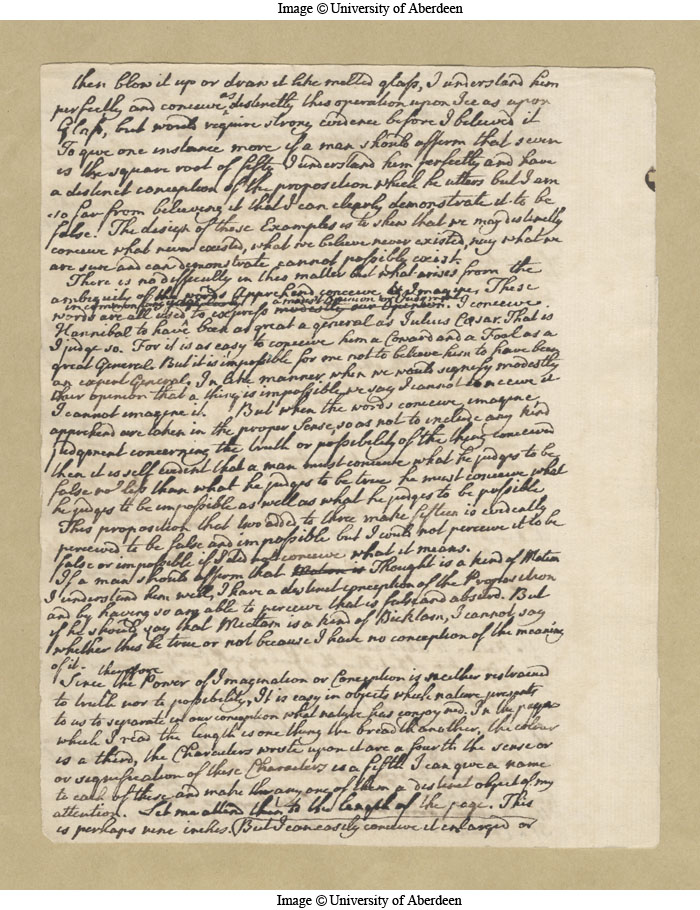 Image © University of Aberdeen
then blow it up or draw it like melted glass, I understand him
perfectly and conceive as distinctly this operation upon Ice as upon
Glass, but would require strong evidence before I believed it
To give one instance more if a man should affirm that seven
is the square root of fifty I understand him perfectly and have
a distinct conception of the proposition which he utters but I am
so far from believing it that I can clearly demonstrate it to be
false. The design of these Examples is to shew that we may distinctly
conceive what never existed, what we believe never existed, nay what we
are sure and can demonstrate cannot possibly exist.
There is no difficulty in this matter but what arises from the
ambiguity of the words Apprehend conceive Imagine. These
in common language
words are all used to express modestly our Opinion. I conceive
Hannibal to have been as great a general as Julius Cæsar. That is
I judge so. For it is as easy to conceive him a Coward and a Fool as a
great General. But it is impossible for me not to believe him to have been
an expert General. In like manner when we would signify modestly
our opinion that a thing is impossible we say I cannot conceive it
I cannot imagine it. But when the words conceive, imagine,
apprehend are taken in the proper Sense, so as not to include any kind
judgment concerning the truth or possibility of the thing conceived
then it is self evident that a man must conceive what he judges to be
false no less than what he judges to be true he must conceive what
he judges to be impossible as well as what he judges to be possible
This proposition that two added to three make fifteen is evidently
perceived to be false and impossible but I could not perceive it to be
false or impossible if I did not conceive what it means.
If a man should affirm that Thought is a kind of Motion
I understand him well, I have a distinct conception of the Proposition
and by having so am able to perceive that is false and absurd. But
if he should say that is a kind of I cannot say
whether this be true or not because I have no conception of the meaning
of it. therefore
Since the Power of Imagination or Conception is neither restrained
to truth nor to possibility, It is easy in objects which nature presents
to us to separate in our conception what nature has conjoyned. In the page
which I read the length is one thing the breadth another, the colour
is a third, the Characters wrote upon it are a fourth the sense or
or signification of these Characters is a fifth I can give a name
to each of these and make any one of them a distinct object of my
attention. Let me attend then to the length of the page. This
is perhaps nine inches. But I can easily conceive it enlarged or
Image © University of Aberdeen